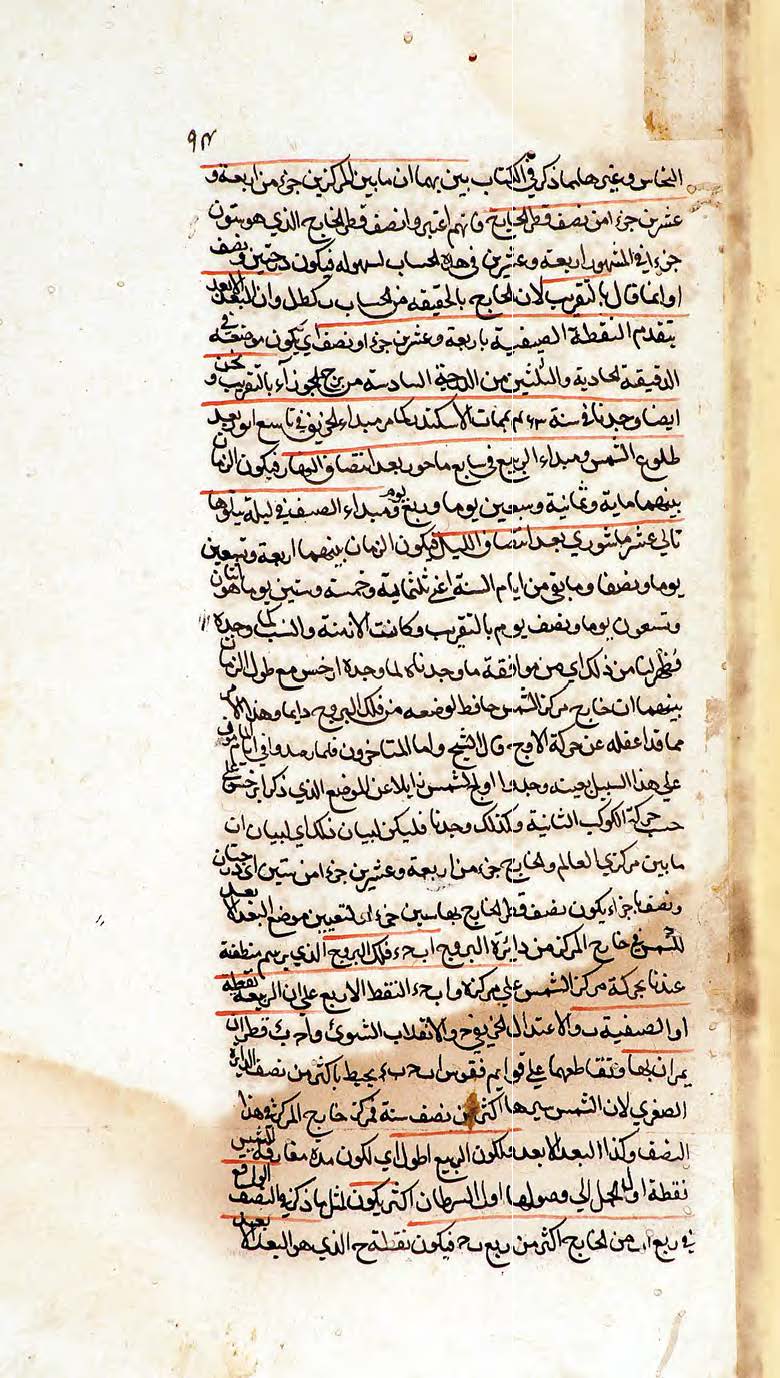 ٩٣
النحاس وغيرها بما ذكر في الكتاب بين بهما ان ما بين المركزين جزء من اربعة و
عشرين جزءا من نصف قطر الخارج فانهم اعتبروا نصف قطر الخارج الذي هو ستون
جزءا في المشهور اربعة وعشرين في هذه الحساب لسهولة فيكون درجتين ونصف
وانما قال بالتقريب لان الخارج بالحقيقة من الحساب وان البعد الابعد
يتقدم النقطة الصيفية باربعة وعشرين جزءا ونصف اي يكون موضعه في
الدقيقة الحادية والثلثين من الدرجة السادسة من برج الجوزاء بالتقريب ونحن
ايضا وجدنا في سنة لممات الاسكندر كما مر مبداء الخريف في تاسع اتور بعد
طلوع الشمس ومبداء الربيع في سابع ماخور بعد انتصاف النهار فيكون الزمان
بينهما ماية وثمانية وسبعين يوما وربع يوم ومبداء الصيف في ليلة يتلوها
ثاني عشر ماشوري بعد انتصاف الليل فيكون الزمان بينهما اربعة وتسعين
يوما ونصفا وما بقي من ايام السنة اعني ثلثماية وخمسة وستين يوما هو اثنان
وتسعون يوما ونصف يوم بالتقريب وكانت الازمنة والنسب كما وجده
فظهر لنا من ذلك اي من موافقة ما وجدناه لما وجده ارخس مع طول الزمان
بينهما ان خارج مركز الشمس حافظ لوضعه من فلك البروج دايما وهذا الامر
مما قد اغفله عن حركة الاوج قال الشيخ واما المتاخرون فلما رصدوا في ايام
علي هذا السبيل بعينه وجدوا اوج الشمس زايلا عن الموضع الذي ذكر ابرخس علي
حسب حركة الكوكب الثانية وكذلك وجدنا فليكن لبيان ذلك اي لبيان ان
ما بين مركزي العالم والخارج جزء من اربعة وعشرين جزءا من ستين اي درجتان
ونصف باجزاء يكون نصف قطر الخارج بها ستين جزءا ولتعيين موضع البعد الابعد
للشمس في خارج المركز من دايرة البروج اب حء فلك البروج الذي يرسم منطقة
عندنا بحركة مركز الشمس علي مركز ه و اب حء النقط الاربع علي ان الربيعة نقطة
ا والصيفية ب والاعتدال الخريفي ح والانقلاب الشتوي ء واح ب ء قطران
يمران بها وتقاطعهما علي قوايم فقوس اب ح يحيط باكثر من نصف الدايرة
الصغري لان الشمس سيرها اكثر من نصف سنة فمركز خارج المركز في هذا
النصف وكذا البعد الابعد ولكون الربيع اطول اي لكون مدة مفارقة الشمس
نقطة اول الحمل الي وصولها اول السرطان اكثر يكون لمثل ما ذكر في النصف الواقع
في ربع اب من الخارج اكثر من ربع ب ح فيكون نقطة ح الذي هو البعد الابعد